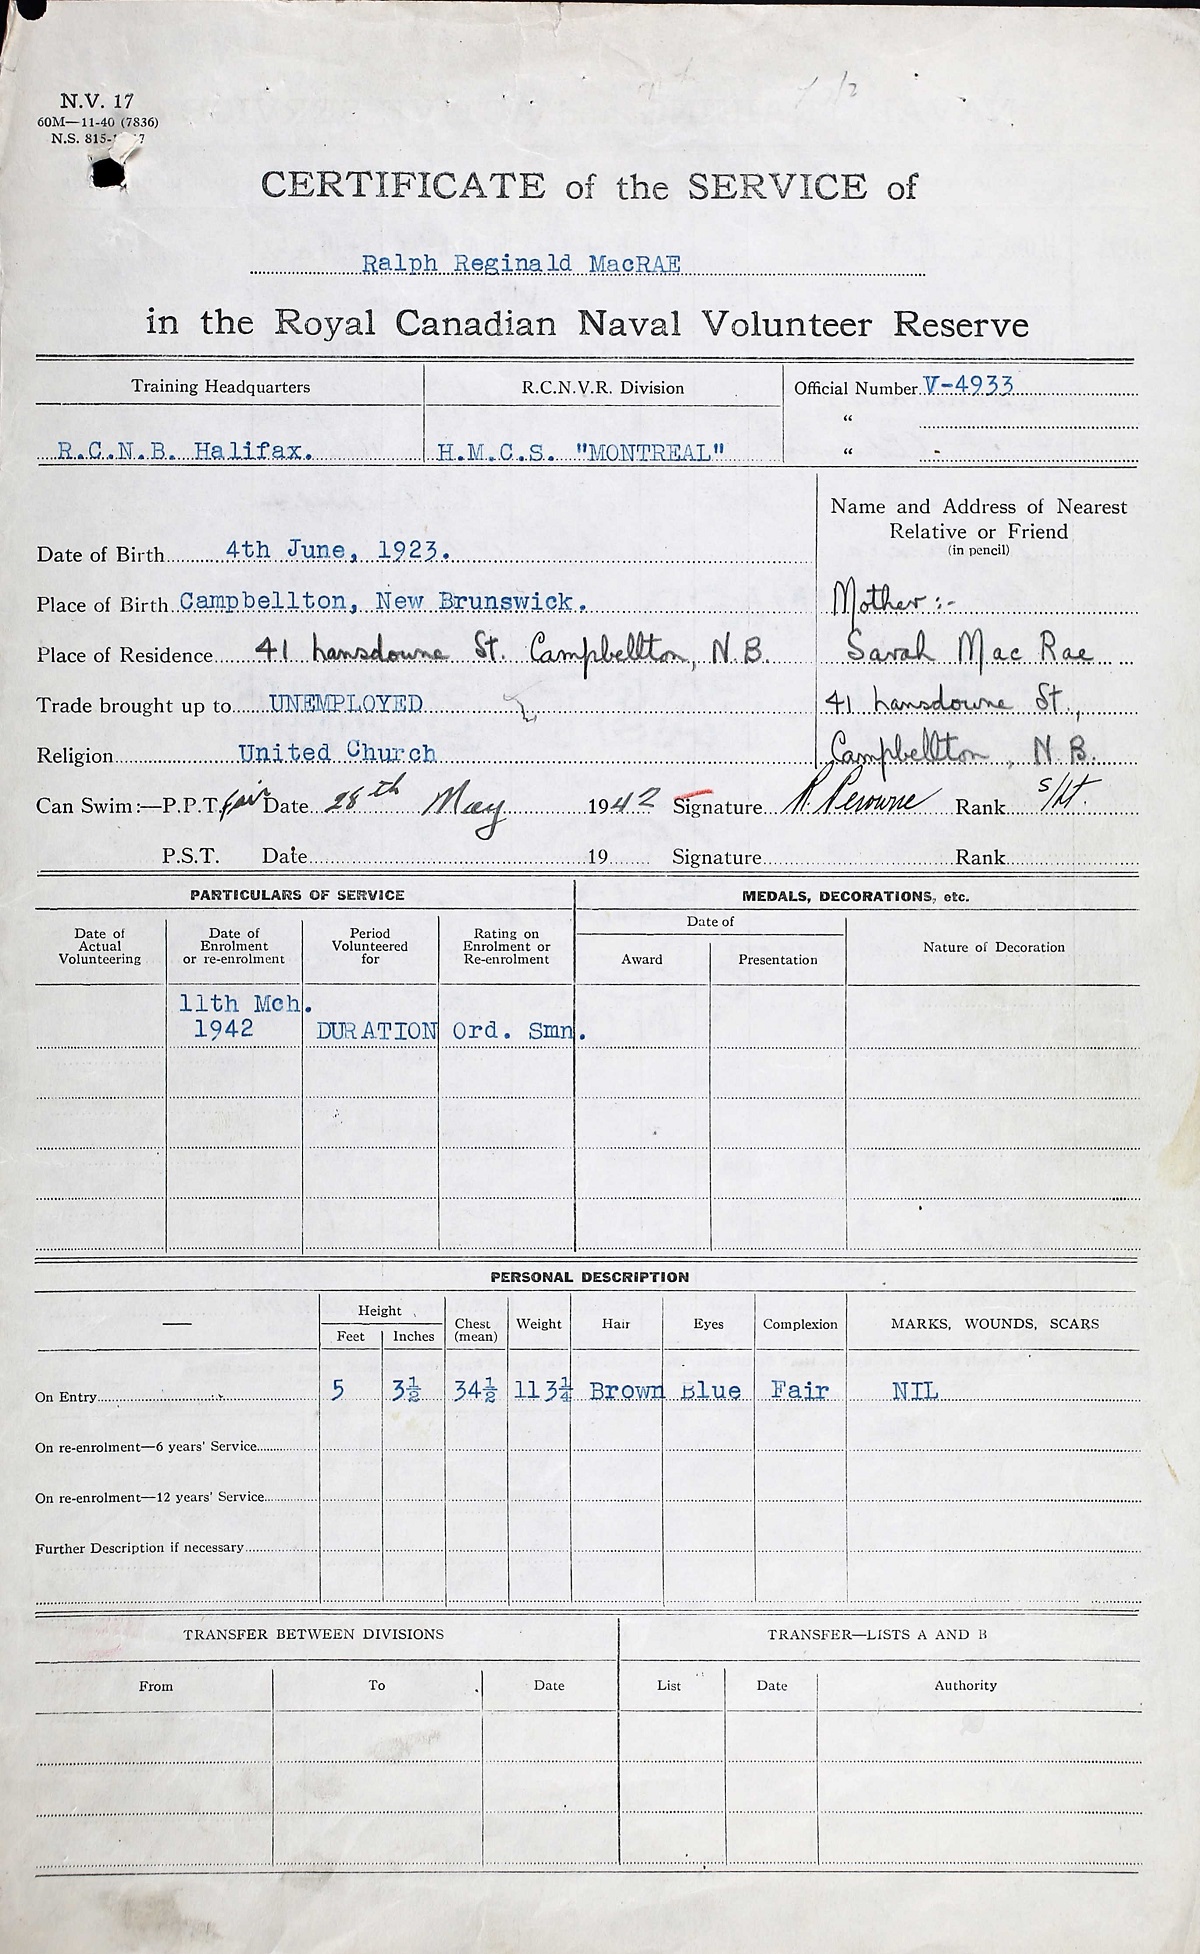 N.V. 17
60M—11-40 (7836)
N.S. 815-
CERTIFICATE of the SERVICE of
Ralph Reginald MacRAE
in the Royal Canadian Naval Volunteer Reserve
Training Headquarters R.C.N.V.R. Division Official Number V-4933
“
R.C.N.B. Halifax. H.M.C.S. "MONTREAL" “
Name and Address of Nearest
Relative or Friend
(in pencil)
Date of Birth 4th June, 1923.
Place of Birth Campbellton, New Brunswick. Mother:-
Place of Residence 41 Lansdowne St. Campbellton, N.B. Sarah Mac Rae
Trade brought up to UNEMPLOYED 41 Lansdowne St.,
Religion United Church Campbellton, N.B.
Can Swim:—P.P.T. fair Date 28th May 1942 Signature R. Perowne Rank S/Lt.
P.S.T. Date 19 Signature Rank
PARTICULARS OF SERVICE MEDALS, DECORATIONS, etc.
Date of Actual Volunteering Date of Enrolment or re-enrolment Period Volunteered for Rating on Enrolment or Re-enrolment Date of Nature of Decoration
Award Presentation
11th Mch.
1942 DURATION Ord. Smn.
PERSONAL DESCRIPTION
— Height Chest (mean) Weight Hair Eyes Complexion MARKS, WOUNDS, SCARS
Feet Inches
On Entry 5 3½ 34½ 113¼ Brown Blue Fair NIL
On re-enrolment—6 years' Service
On re-enrolment—12 years' Service
Further Description if necessary
TRANSFER BETWEEN DIVISIONS TRANSFER—LISTS A AND B
From To Date List Date Authority